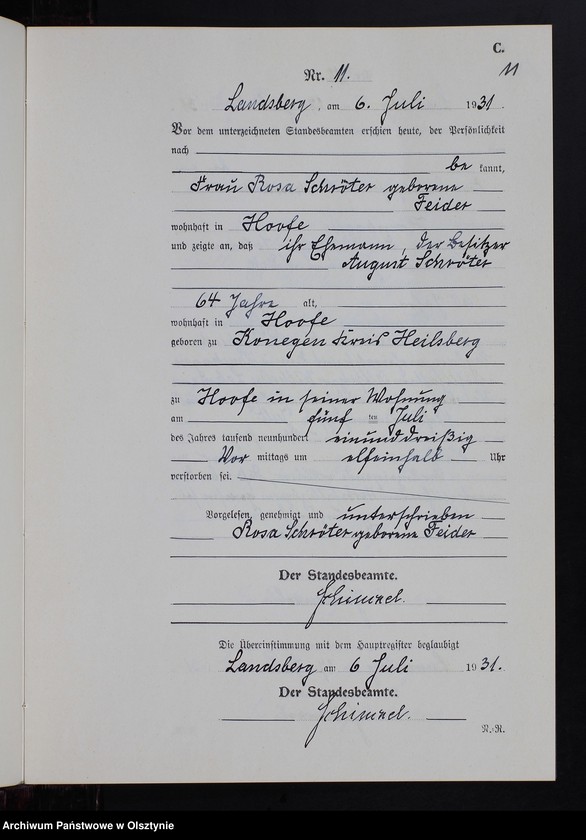 C.
Nr. 11.
11
Landsberg, am 6. Juli 1931
Vor dem unterzeichneten Standesbeamten erschien heute, der Persönlichkeit
nach
be kannt,
Frau Rosa Schröter geborene
Feider
wohnhaft in Hoofe
und zeigte an, daß ihr Ehemann, der Besitzer
August Schröter
64 Jahre alt,
wohnhaft in Hoofe
geboren zu Konegen Kreis Heilsberg
zu Hoofe in seiner Wohnung
am fünf ten Juli
des Jahres tausend neunhundert einunddreißig
Vor mittags um elfeinhalb Uhr
verstorben sei.
Vorgelesen, genehmigt und unterschrieben
Rosa Schröter geborene Feider
Der Standesbeamte.
Schimkel.
Die Übereinstimmung mit dem Hauptregister beglaubigt
Landsberg am 6 Juli 1931.
Der Standesbeamte.
Schimkel.
N.-R.
Archiwum Państwowe w Olsztynie